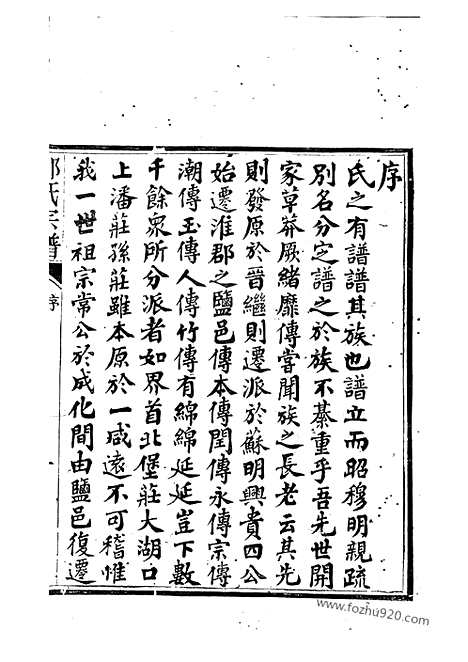 序
氏之有譜譜其族也譜立而昭穆明親疏
別名分定譜之於族不綦重乎吾先世開
家草莽厥緒靡傳嘗聞族之長老云其先
則發原於晉繼則遷派於蘇明興貴四公
始遷淮郡之鹽邑傳本傳閏傳永傳宗傳
潮傳玉傳人傳竹傳有綿綿延延豈下數
千餘眾所分派者如界首北堡莊大湖口
上潘莊孫莊雖本原於一咸遠不可稽惟
我一世祖宗常公於成化間由鹽邑復遷
氏宗譜
序
www.fozhu920.com